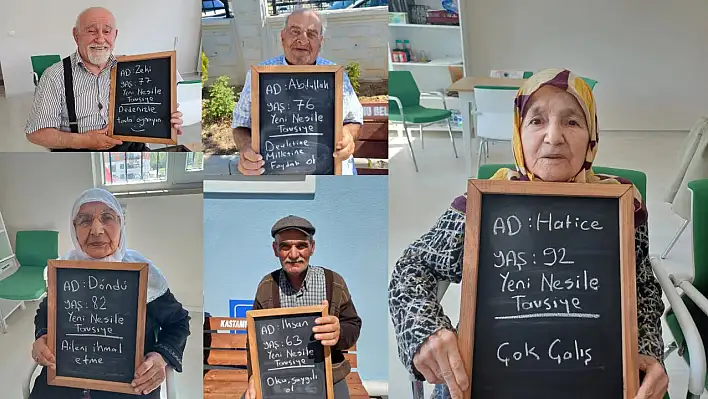 AD: Zeki
YAŞ: 77
Yeni Nesile
Tavsiye
Dedenizle
tavla oynayın
AD: Abdullah
YAŞ: 76
Yeni Nesile
Tavsiye
Devletine
Milletine
Faydalı ol
AD: Döndü
YAŞ: 82
Yeni Nesile
Tavsiye
Aileni ihmal
etme
KASTAMONU
AD: İhsan
YAŞ: 63
Yeni Nesile
Tavsiye
Oku, saygılı
ol
AD: Hatice
YAŞ: 92
Yeni Nesile
Tavsiye
Çok Çalış